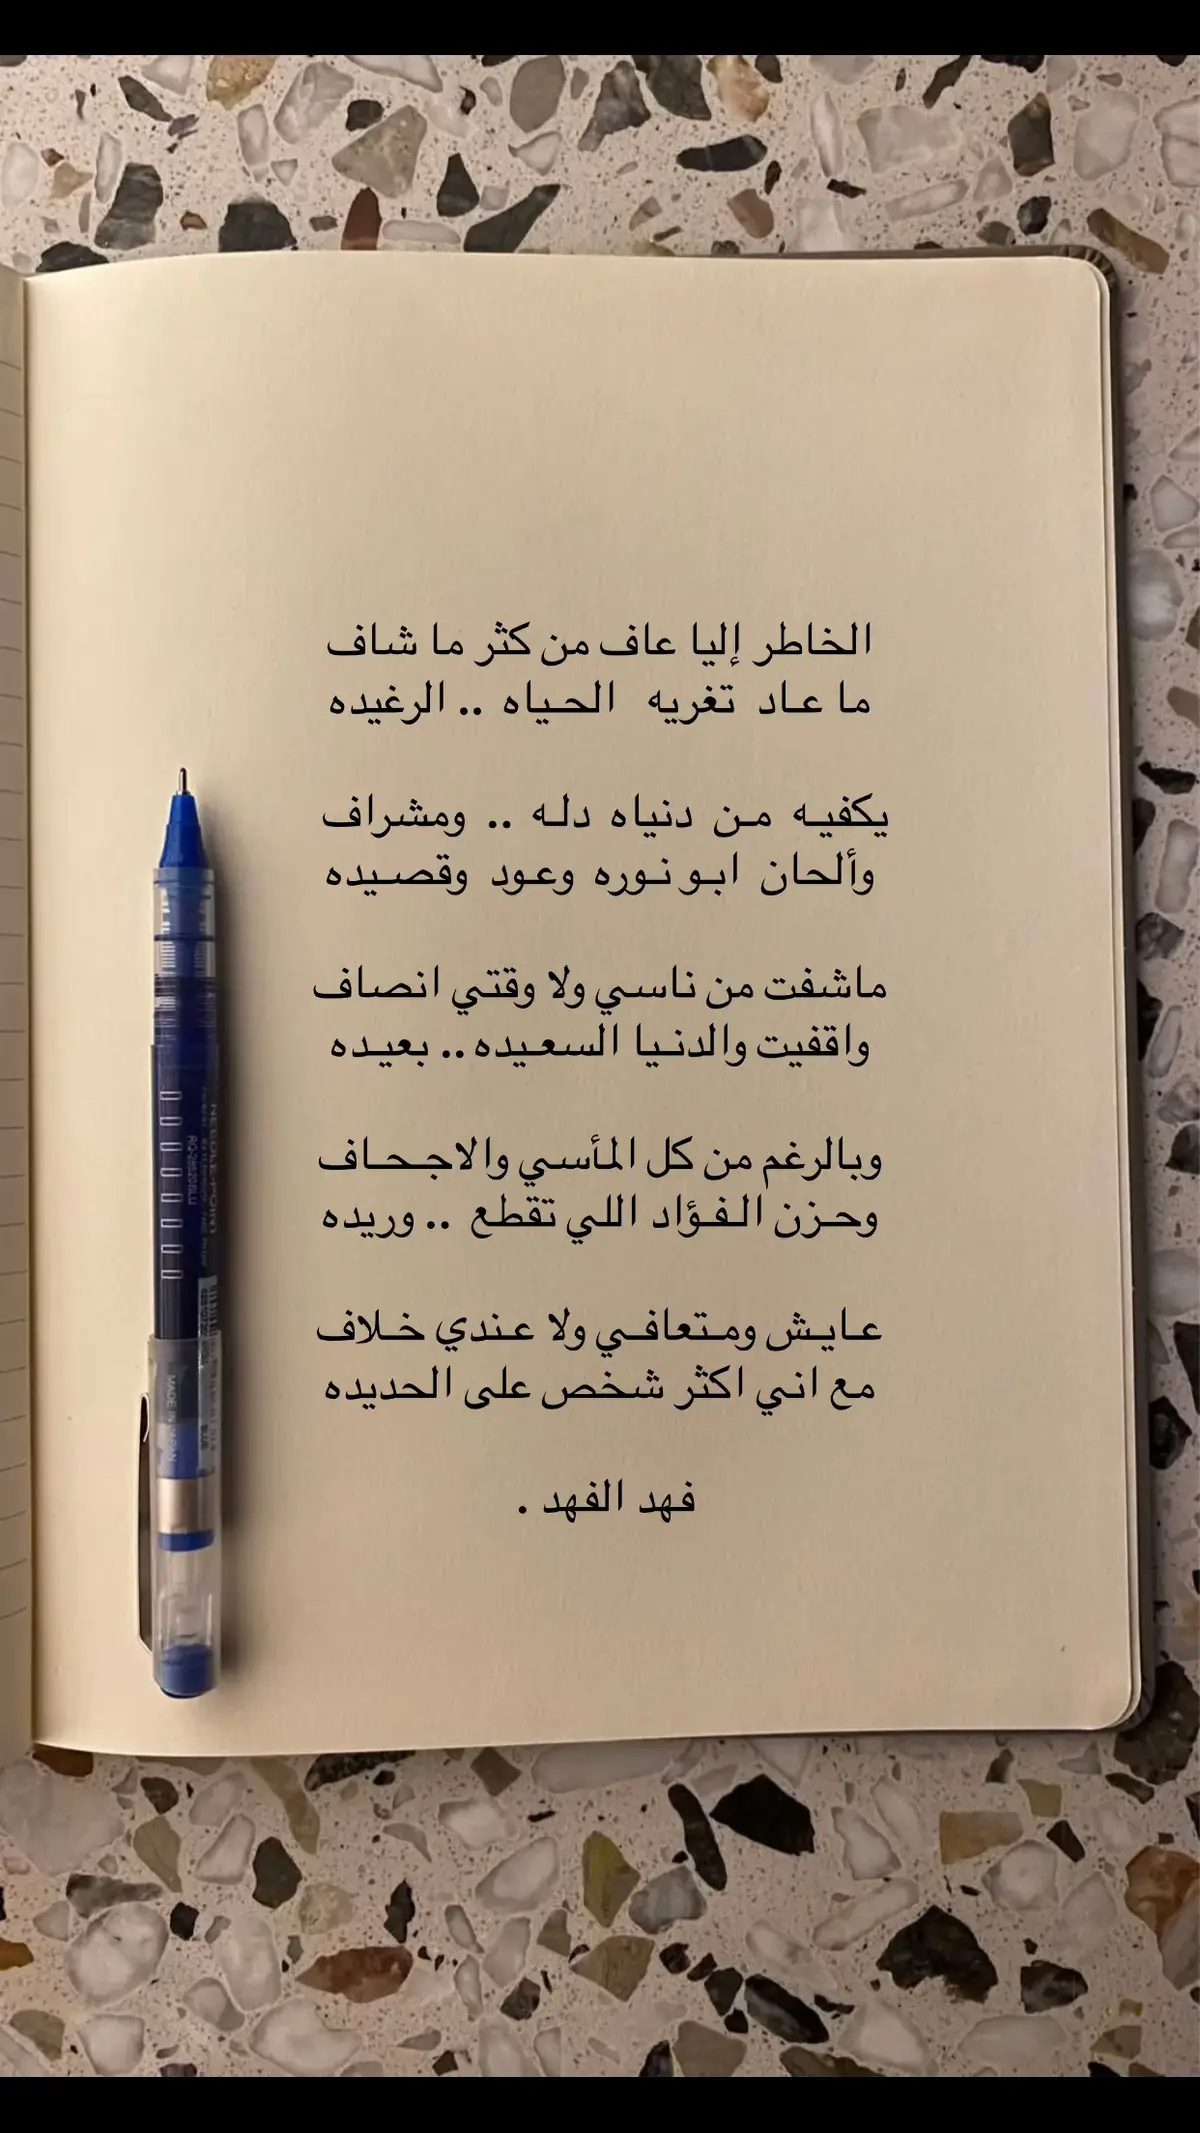 الخاطر إليا عاف من كثر ما شاف
ما عـاد تغريه الحـياه .. الرغيده
يكفيـه مـن دنياه دلـه .. ومشراف
وألحان ابـو نـوره وعـود وقصـيده
ماشفت من ناسـي ولا وقتـي انصاف
واقفيت والدنـيا السعـيده .. بعيـده
وبالرغم من كل المأسـي والاجـحـاف
وحـزن الـفـؤاد اللـي تقطـع .. وريده
عـايـش ومـتعافـي ولا عـندي خـلاف
مع انـي اكثر شـخص على الحديده
فهد الفهد .
NEEDLE-POINT
RG-28520BLU
MADE IN JAPAN